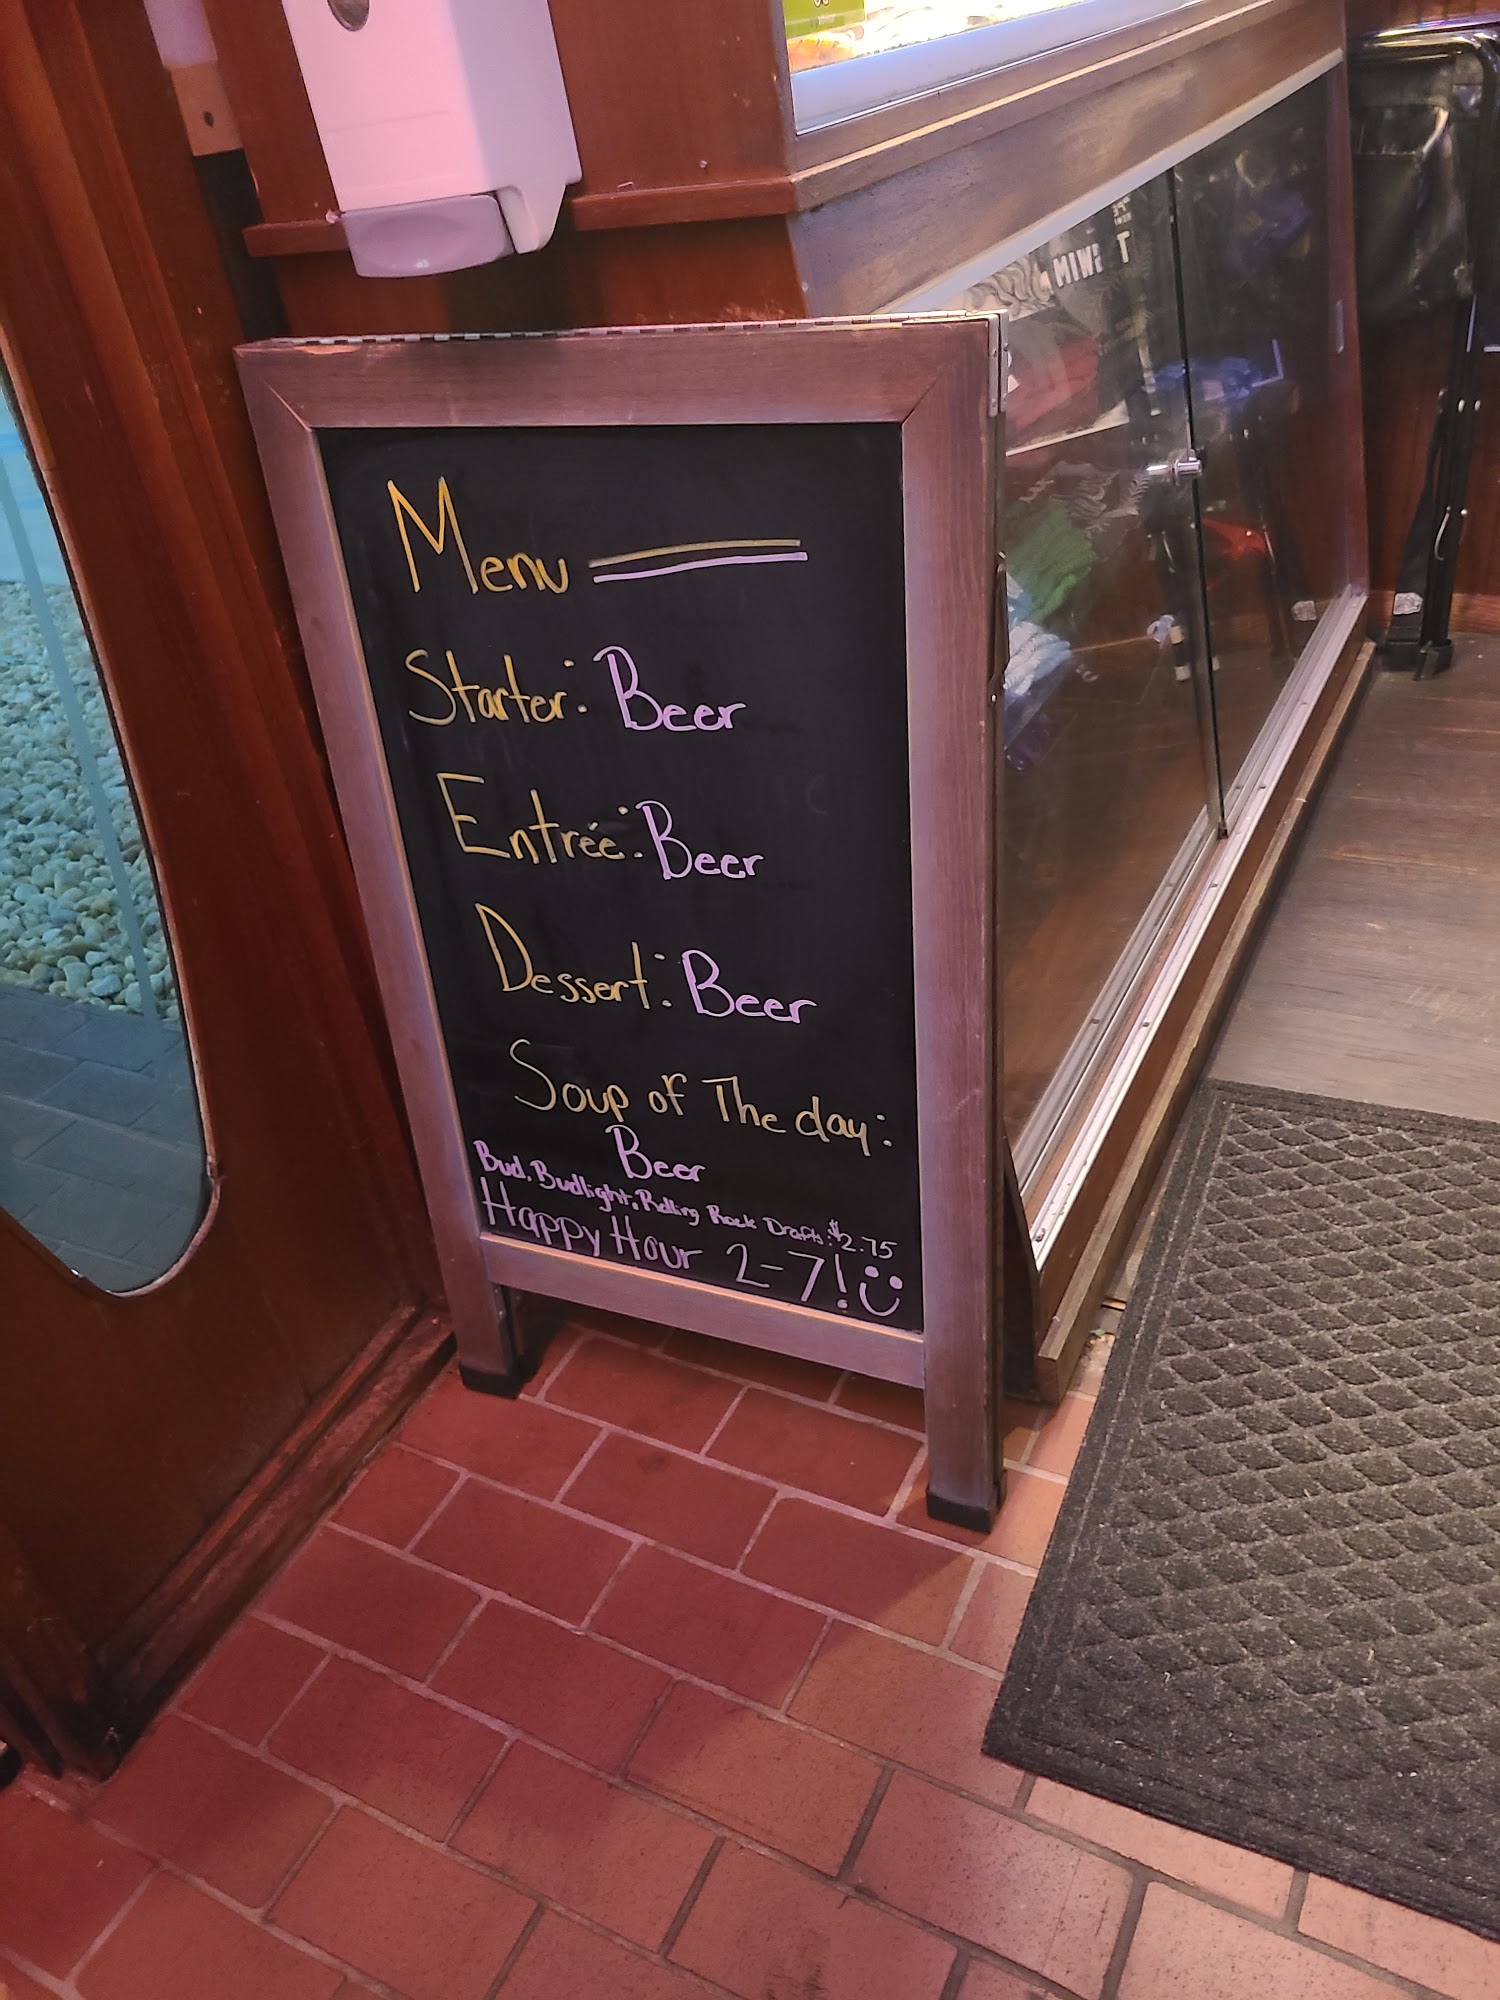 Menu
Starter: Beer
Entrée: Beer
Dessert: Beer
Soup of The day:
Beer
Bud, Budlight, Rolling Rock Drafts: $2.75
Happy Hour 2-7!
SWIM